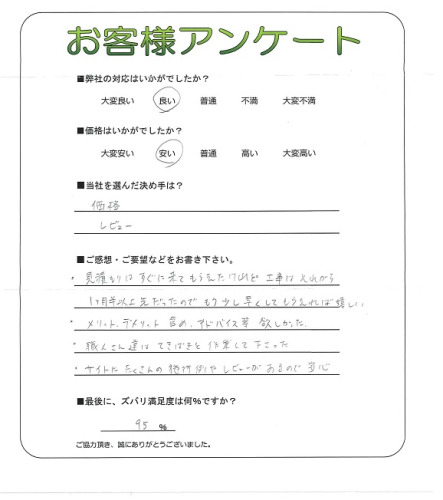 お客様アンケート
■弊社の対応はいかがでしたか？
大変良い 良い 普通 不満 大変不満
■価格はいかがでしたか？
大変安い 安い 普通 高い 大変高い
■当社を選んだ決め手は？
価格
レビュー
■ご感想・ご要望などをお書き下さい。
・見積もりはすぐに来てもらえたけれど 工事はそれから
1ヶ月半以上先だったので もう少し早くしてもらえれば嬉しい
・メリット、デメリット 含め、アドバイス等 欲しかった。
・職人さん達は てきぱきと 作業して下さった
・サイトに たくさんの 施工例や レビューが あるので 安心
■最後に、ズバリ満足度は何%ですか？
95 %
ご協力頂き、誠にありがとうございました。